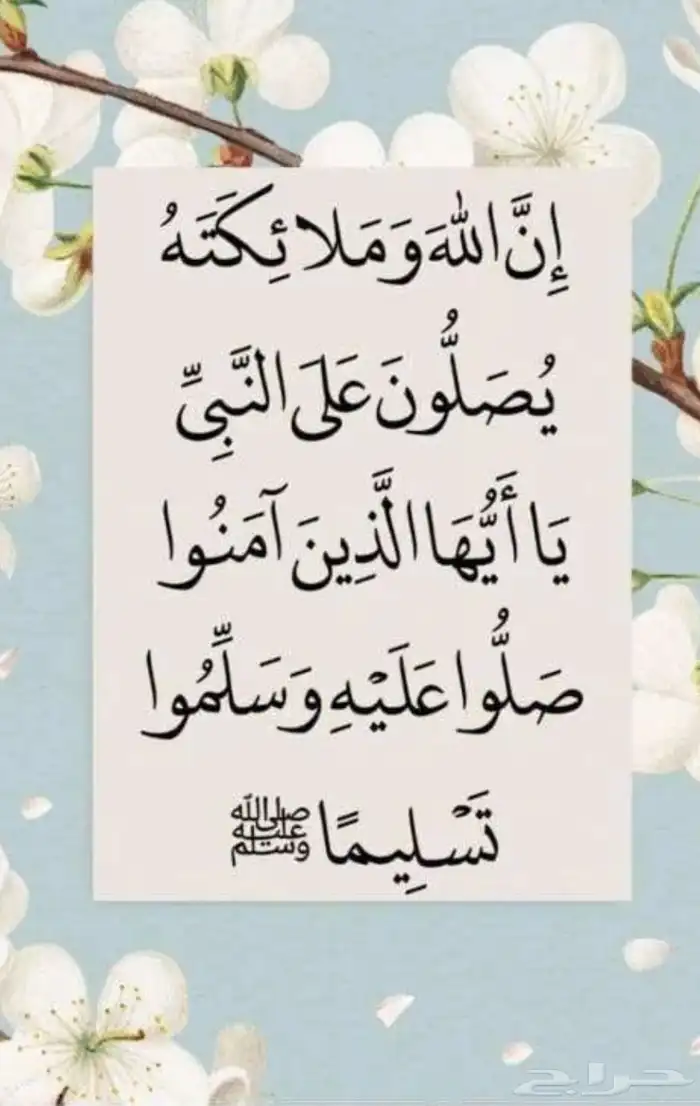 إِنَّ اللهَ وَمَلائِكَتَهُ
يُصَلُّونَ عَلَى النَّبِيِّ
يَا أَيُّهَا الَّذِينَ آمَنُوا
صَلُّوا عَلَيْهِ وَسَلِّمُوا
تَسْلِيمًا ﷺ
حراج